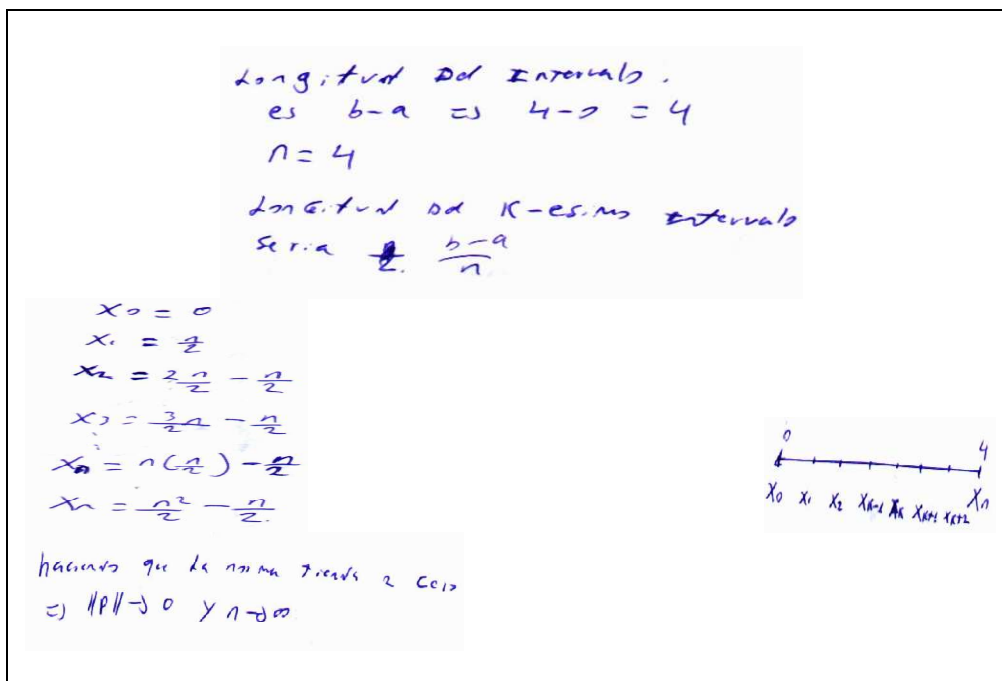 Longitud Del Intervalo.
es b-a => 4-0 = 4
n = 4
Longitud Del K-esimo Intervalo
seria b-a/n
x0 = 0
x1 = n/2
x2 = 2n/2 - n/2
x3 = 3/2n - n/2
xn = n(n/2) - n/2
xn = n²/2 - n/2.
haciendo que la norma tienda a cero
=> ||P|| → 0 y n → ∞
0 4
X0 X1 X2 XK-1 XK XK+1 XK+2 Xn